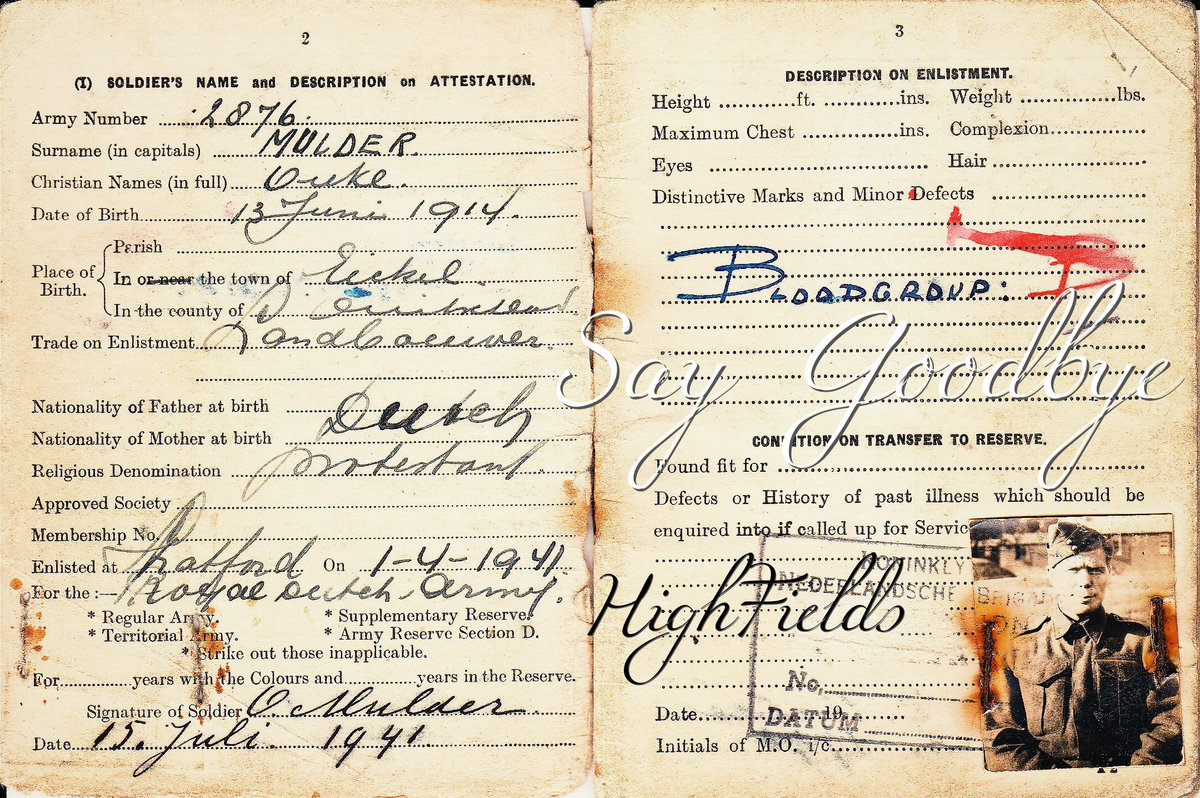 2
(I) SOLDIER'S NAME and DESCRIPTION on ATTESTATION.
Army Number 2876.
Surname (in capitals) MULDER.
Christian Names (in full)
Date of Birth 13 Juni 1914.
Parish
Place of Birth.
In or near the town of Eickel.
In the county of
Trade on Enlistment Landbouwer.
Nationality of Father at birth
Dutch
Nationality of Mother at birth
Religious Denomination protestant.
Approved Society
Membership No.
Enlisted at Stratford On 1-4-1941
For the :— Royal Dutch Army.
* Regular Army. * Supplementary Reserve.
* Territorial Army. * Army Reserve Section D.
* Strike out those inapplicable.
For years with the Colours and years in the Reserve.
Signature of Soldier O. Mulder
Date 15. Juli. 1941.
3
DESCRIPTION ON ENLISTMENT.
Height ft. ins. Weight lbs.
Maximum Chest ins. Complexion
Eyes Hair
Distinctive Marks and Minor Defects
BLOODGROUP:
Say Goodbye
CONDITION ON TRANSFER TO RESERVE.
Found fit for
Defects or History of past illness which should be
enquired into if called up for Servic
KONINKLY
NEDERLANDSCHE
HighFields
No.
Date 19
DATUM
Initials of M.O. i/c